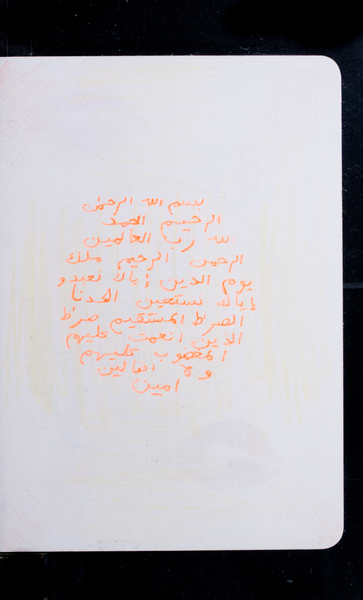 بسم الله الرحمن
الرحيم الحمد
لله رب العالمين
الرحمن الرحيم ملك
يوم الدين إياك نعبد و
إياك نستعين اهدنا
الصراط المستقيم صراط
الذين انعمت عليهم
المغضوب عليهم
ولا الضالين
امين